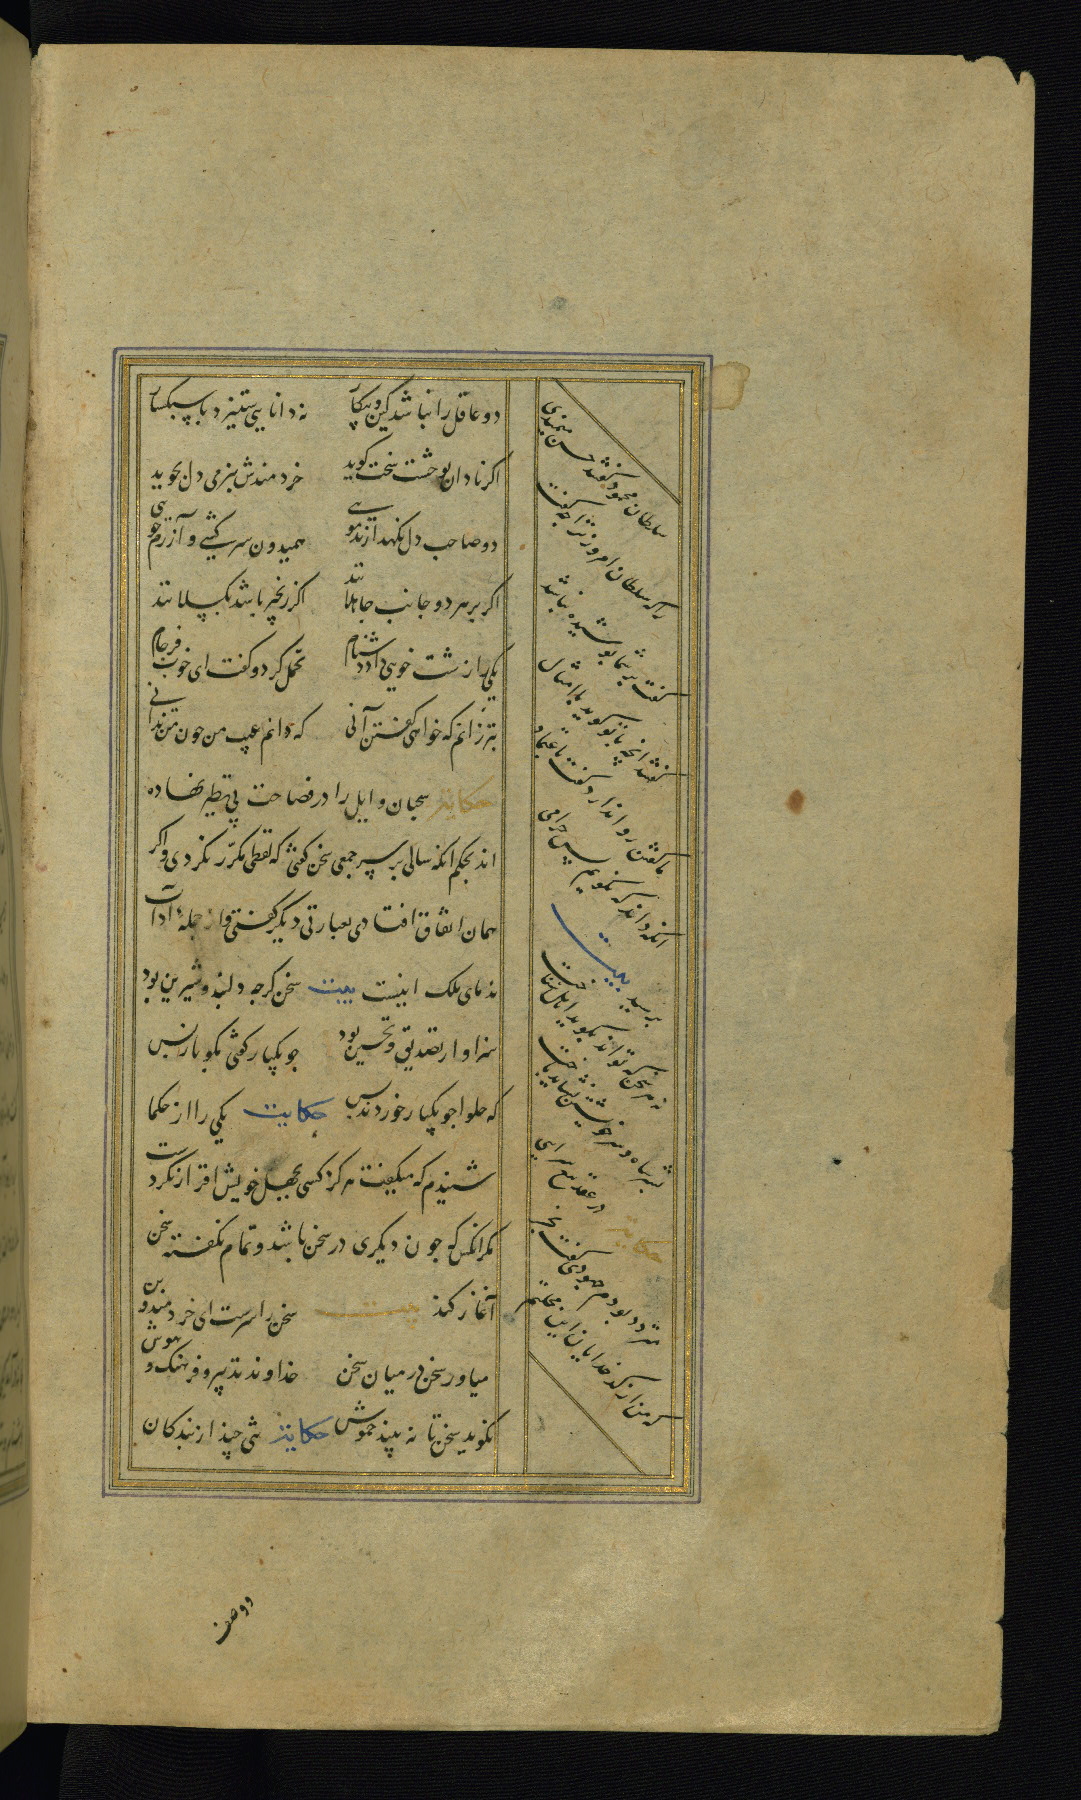 دو عاقل را نباشد کین و پیکار نه دانایی ستیزد با سبکسار
اکر نادان بوحشت سخت کوید خردمندش بنرمی دل بجوید
دو صاحب دل نکهدارند مویی همیدون سرکشی و آزرم جویی
اکر بر هر دو جانب جاهلانند اکر زنجیر باشد بکسلانند
یکی را زشت خویی داد دشنام تحمل کرد و کفت ای خوب فرجام
بتر زانم که خواهی کفتن آنی که دانم عیب من چون من ندانی
حکایت سحبان وایل را در فصاحت بی نظیر نهاده
اند بحکم انکه سالی بر سر جمعی سخن کفتی که لفظی مکرّر نکردی و اکر
همان اتفاق افتادی بعبارتی دیکر کفتی و از جمله آداب
ندمای ملک اینست بیت سخن کرچه دلبند و شیرین بود
سزاوار تصدیق و تحسین بود چو یکبار کفتی مکو باز پس
که حلوا چو یکبار خوردند بس حکایت یکی را از حکما
شنیدم که میکفت هرکز کسی بجهل خویش اقرار نکردست
مکر انکس که چون دیکری در سخن باشد و تمام نکفته سخن
آغاز کند بیت سخن را سرست ای خردمند و بن
میاور سخن در میان سخن خداوند تدبیر و فرهنک و هوش
نکوید سخن تا نه بیند خموش حکایت تنی چند از بندکان
سلطان محمود کفتند حسن میمندی
را که سلطان امروز ترا چه کفت
کفت بر شما پوشیده نباشد
کفتند انچه با تو کوید با امثال
ما کفتن روا ندارد کفت باعتماد
انکه داند که نکویم پس چرا می
پرسید بیت
نه هر سخن که تواند بکوید اهل شناخت
بسر شاه سر خویشتن نشاید باخت
حکایت در عقد بیع سرایی
متردد بودم جهودی کفت بخر
که من از کدخدایان این محلتم
و وصف